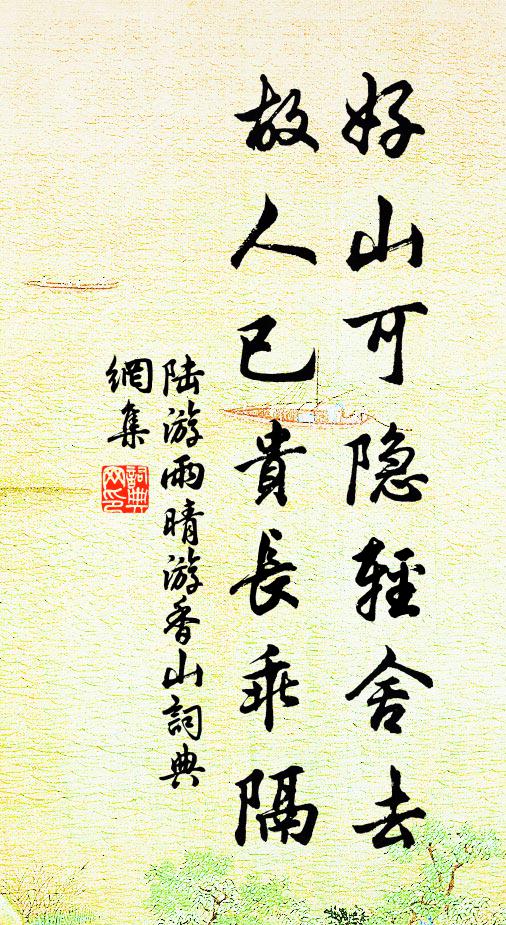 好山可隐輕舍去
故人已貴長乖隔
陆游雨晴游香山詞典
網集
詞典
网印